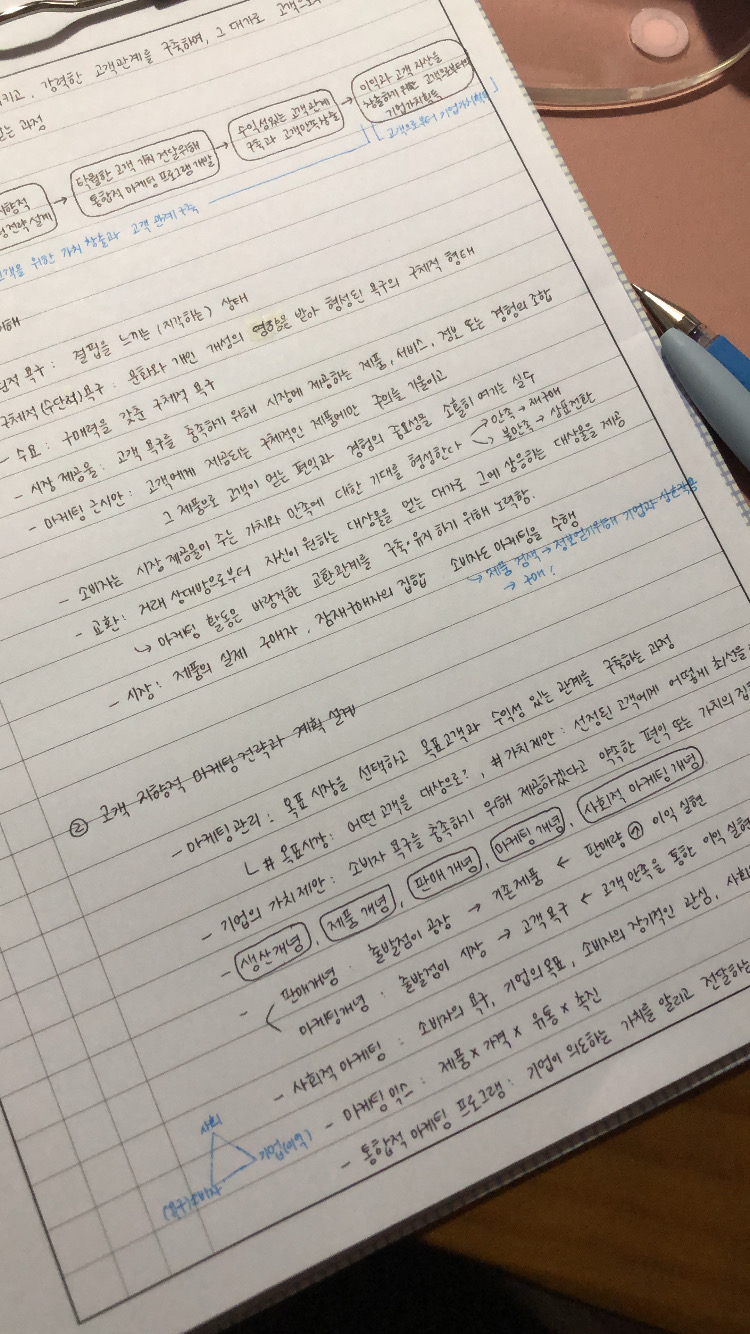 키고, 강력한 고객관계를 구축하여, 그 대가로 고객으로
는 과정
지향적
전략 설계
탁월한 고객 가치 전달위해
통합적 마케팅 프로그램 개발
수익성있는 고객관계
구축과 고객만족창출
이익과 고객 자산을
창출하기 위한 고객으로부터의
기업가치획득
[고객으로부터 기업가치획득]
고객을 위한 가치 창출과 고객 관계 구축
이해
적 욕구 : 결핍을 느끼는 (지각하는) 상태
구체적 (수단적) 욕구 : 문화와 개인 개성의 영향을 받아 형성된 욕구의 구체적 형태
- 수요 : 구매력을 갖춘 구체적 욕구
- 시장 제공물 : 고객 욕구를 충족하기 위해 시장에 제공하는 제품, 서비스, 정보 또는 경험의 조합
- 마케팅 근시안 : 고객에게 제공되는 구체적인 제품에만 주의를 기울이고
그 제품으로 고객이 얻는 편익과 경험의 중요성을 소홀히 여기는 실수
- 소비자는 시장 제공물이 주는 가치와 만족에 대한 기대를 형성한다
만족 → 재구매
불만족 → 상표전환
- 교환 : 거래 상대방으로부터 자신이 원하는 대상물을 얻는 대가로 그에 상응하는 대상물을 제공
↳ 마케팅 활동은 바람직한 교환관계를 구축·유지 하기 위해 노력함.
- 시장 : 제품의 실제 구매자, 잠재구매자의 집합
소비자도 마케팅을 수행
↳ 제품 검색 → 정보얻기위해 기업과 상호작용
→ 구매!
② 고객 지향적 마케팅 전략과 계획 설계
- 마케팅관리 : 목표 시장을 선택하고 목표고객과 수익성 있는 관계를 구축하는 과정
ㄴ # 목표시장 : 어떤 고객을 대상으로?, # 가치제안 : 선정된 고객에게 어떻게 최선을
- 기업의 가치제안 : 소비자 욕구를 충족하기 위해 제공하겠다고 약속한 편익 또는 가치의 집
- 생산개념, 제품개념, 판매개념, 마케팅개념, 사회적 마케팅개념
- 판매개념 : 출발점이 공장 → 기존제품 ← 판매량 ↑ 이익 실현
마케팅개념 : 출발점이 시장 → 고객 욕구 ← 고객만족을 통한 이익 실현
- 사회적 마케팅 : 소비자의 욕구, 기업의 목표, 소비자의 장기적인 관심, 사회
- 마케팅 믹스 : 제품 × 가격 × 유통 × 촉진
- 통합적 마케팅 프로그램 : 기업이 의도하는 가치를 알리고 전달하는
사회
기업(이익)
(욕구)소비자